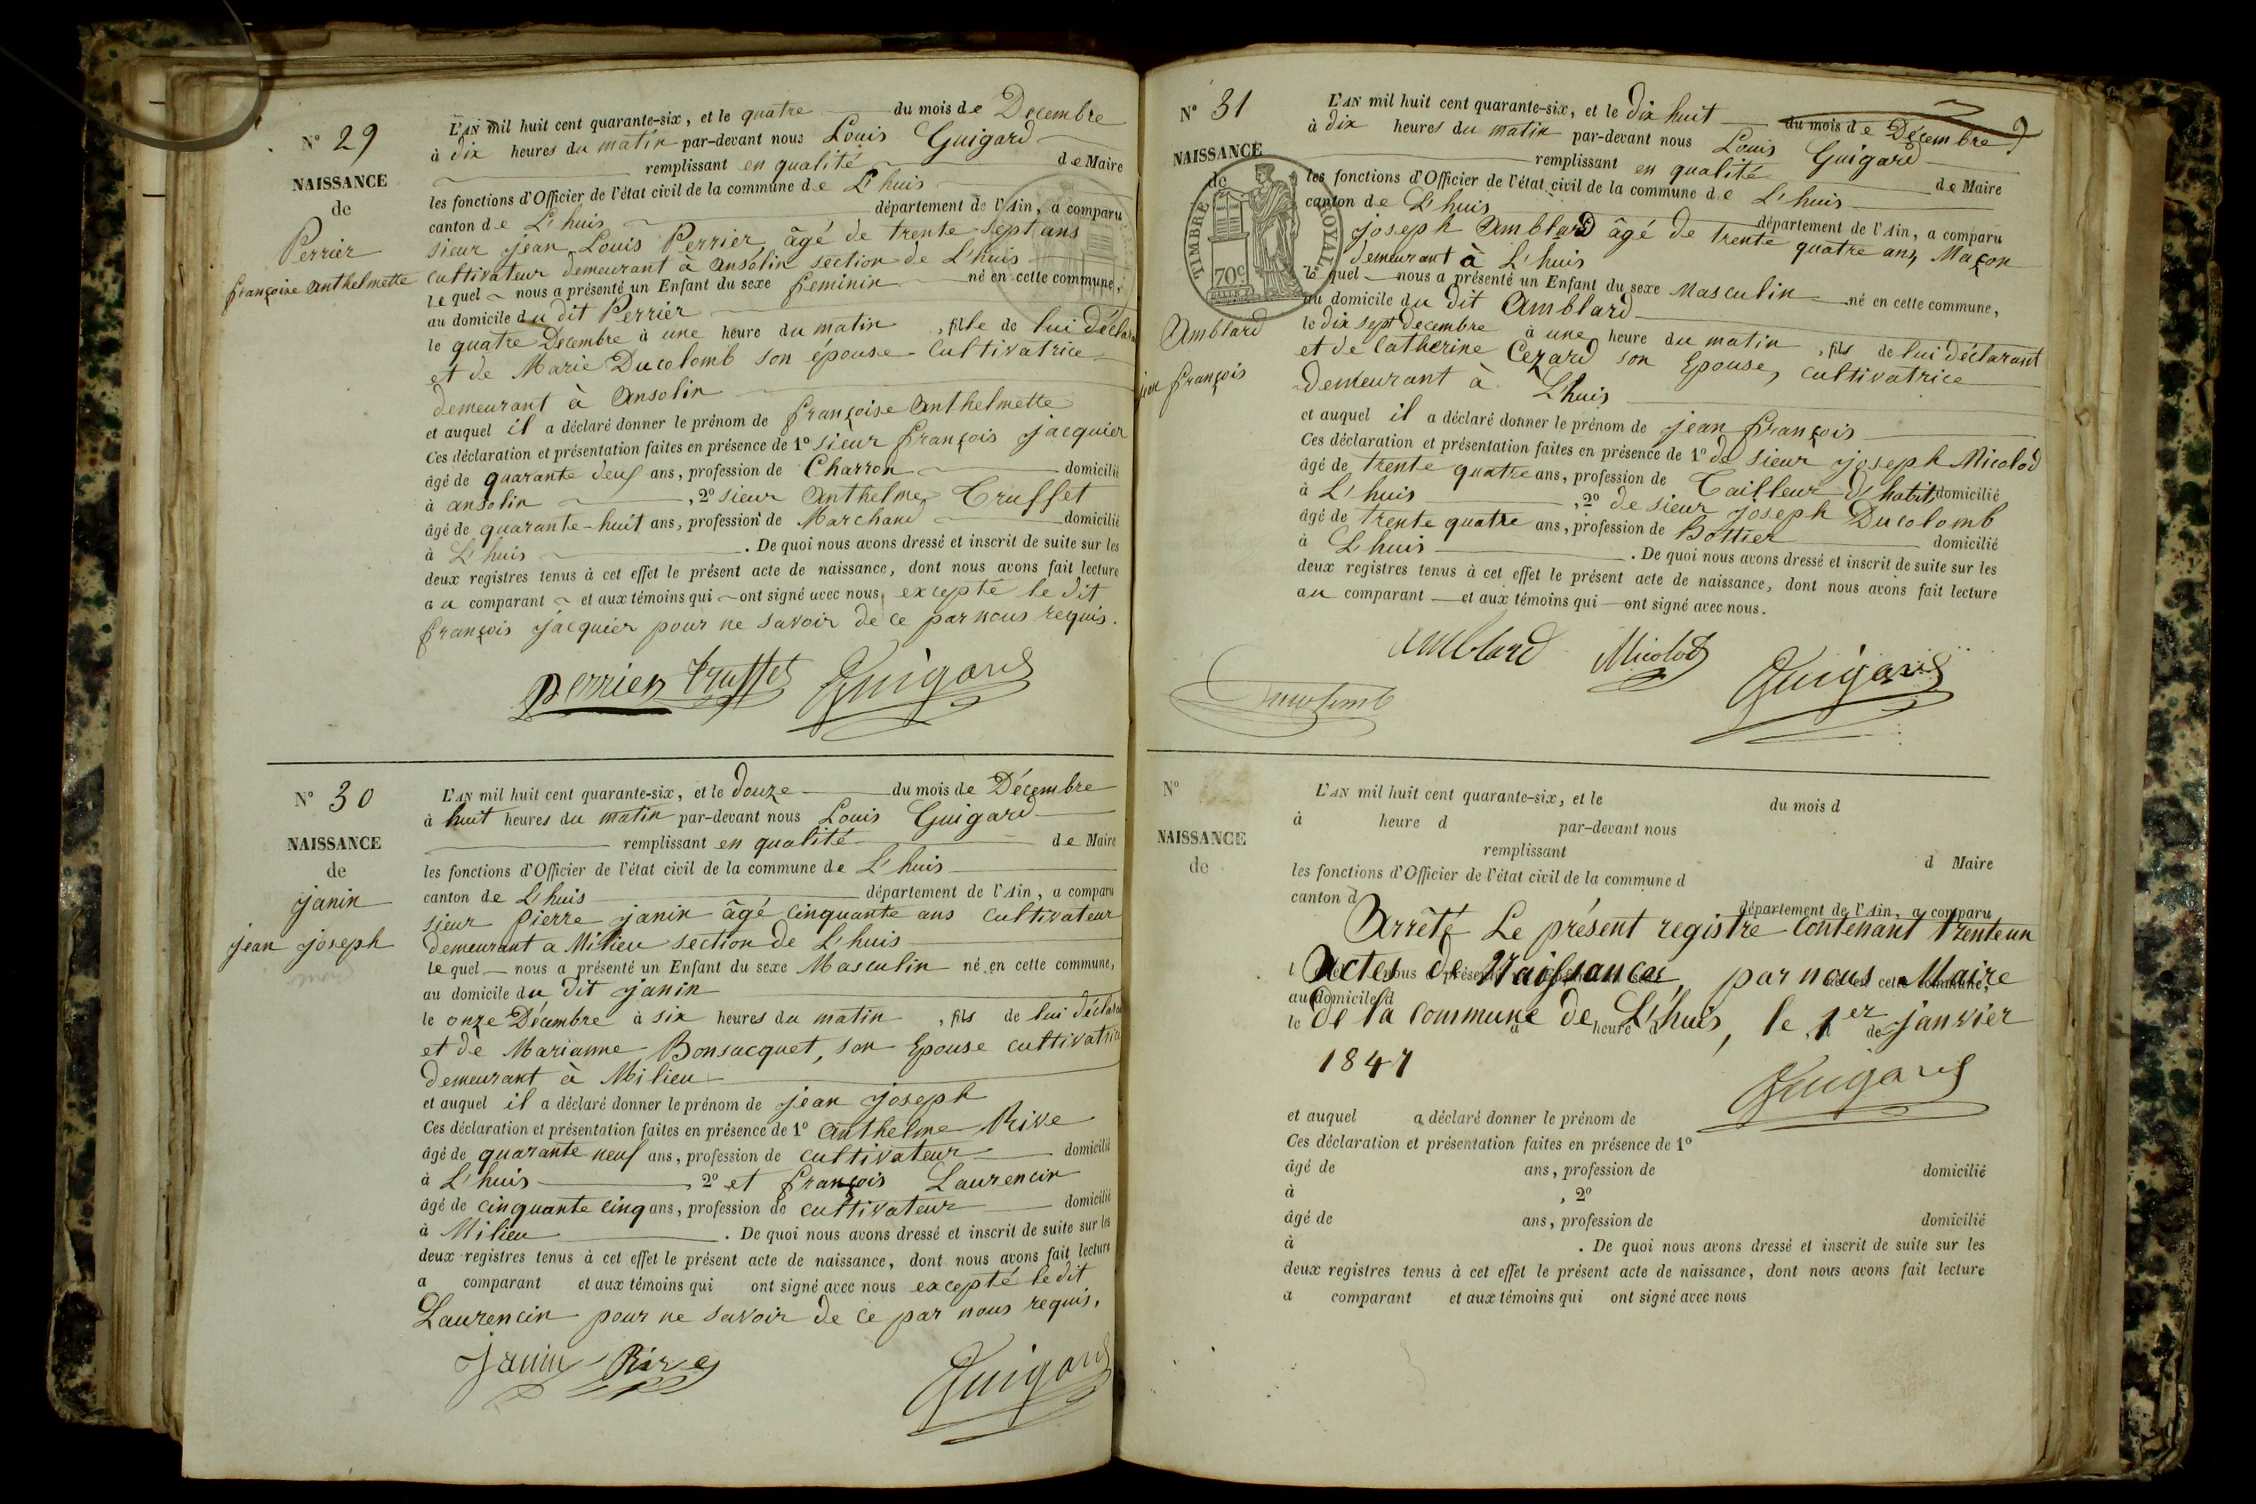 N° 29
NAISSANCE
de
Perrier
françoise anthelmette
L'AN mil huit cent quarante-six, et le quatre du mois de Decembre
à dix heures du matin par-devant nous Louis Guigard
remplissant en qualité de Maire
les fonctions d'Officier de l'état civil de la commune de L'huis
canton de L'huis département de l'Ain, a comparu
sieur jean Louis Perrier âgé de trente sept ans
cultivateur demeurant à ansolin section de L'huis
lequel nous a présenté un Enfant du sexe feminin né en cette commune,
au domicile du dit Perrier
le quatre Decembre à une heure du matin, fille de lui déclarant
et de Marie Ducolomb son épouse cultivatrice
demeurant à ansolin
et auquel il a déclaré donner le prénom de françoise anthelmette
Ces déclaration et présentation faites en présence de 1° sieur françois jacquier
âgé de quarante deux ans, profession de Charron domicilié
à ansolin, 2° sieur anthelme Truffet
âgé de quarante-huit ans, profession de Marchand domicilié
à L'huis. De quoi nous avons dressé et inscrit de suite sur les
deux registres tenus à cet effet le présent acte de naissance, dont nous avons fait lecture
au comparant et aux témoins qui ont signé avec nous, excepté le dit
françois jacquier pour ne savoir de ce par nous requis.
Perrier Truffet Guigard
N° 30
NAISSANCE
de
janin
jean joseph
L'AN mil huit cent quarante-six, et le douze du mois de Décembre
à huit heures du matin par-devant nous Louis Guigard
remplissant en qualité de Maire
les fonctions d'Officier de l'état civil de la commune de L'huis
canton de L'huis département de l'Ain, a comparu
sieur pierre janin âgé cinquante ans cultivateur
demeurant a Milieu section de L'huis
lequel nous a présenté un Enfant du sexe Masculin né en cette commune,
au domicile du dit janin
le onze Décembre à six heures du matin, fils de lui déclarant
et de Marianne Bonsacquet, son Epouse cultivatrice
demeurant à Milieu
et auquel il a déclaré donner le prénom de jean joseph
Ces déclaration et présentation faites en présence de 1° anthelme Rive
âgé de quarante neuf ans, profession de cultivateur domicilié
à L'huis 2° et françois Laurencin
âgé de cinquante cinq ans, profession de cultivateur domicilié
à Milieu. De quoi nous avons dressé et inscrit de suite sur les
deux registres tenus à cet effet le présent acte de naissance, dont nous avons fait lecture
a comparant et aux témoins qui ont signé avec nous excepté ledit
Laurencin pour ne savoir de ce par nous requis.
Janin Rive Guigard
N° 31
NAISSANCE
de
TIMBRE ROYAL
70c
Amblard
jean françois
L'AN mil huit cent quarante-six, et le dix huit du mois de Décembre
à dix heures du matin par-devant nous Louis Guigard
remplissant en qualité de Maire
les fonctions d'Officier de l'état civil de la commune de L'huis
canton de L'huis département de l'Ain, a comparu
joseph Amblard âgé de trente quatre ans, Maçon
demeurant à L'huis
lequel nous a présenté un Enfant du sexe Masculin né en cette commune,
au domicile du dit Amblard
le dix sept Decembre à une heure du matin, fils de lui déclarant
et de Catherine Cezard son Epouse, cultivatrice
demeurant à L'huis
et auquel il a déclaré donner le prénom de jean françois
Ces déclaration et présentation faites en présence de 1° de sieur joseph Micolod
âgé de trente quatre ans, profession de Tailleur d'habits domicilié
à L'huis, 2° de sieur joseph Ducolomb
âgé de trente quatre ans, profession de Bottier domicilié
à L'huis. De quoi nous avons dressé et inscrit de suite sur les
deux registres tenus à cet effet le présent acte de naissance, dont nous avons fait lecture
au comparant et aux témoins qui ont signé avec nous.
amblard Micolod Guigard
Ducolomb
N°
NAISSANCE
de
L'AN mil huit cent quarante-six, et le du mois d
à heure d par-devant nous
remplissant d Maire
les fonctions d'Officier de l'état civil de la commune d
canton d département de l'Ain, a comparu
Arrêté Le présent registre contenant Trente un
Actes de Naissances, par nous Maire
au domicile d
De la commune de L'huis, le 1er janvier
1847
Guigard
et auquel a déclaré donner le prénom de
Ces déclaration et présentation faites en présence de 1°
âgé de ans, profession de domicilié
à , 2°
âgé de ans, profession de domicilié
à . De quoi nous avons dressé et inscrit de suite sur les
deux registres tenus à cet effet le présent acte de naissance, dont nous avons fait lecture
a comparant et aux témoins qui ont signé avec nous